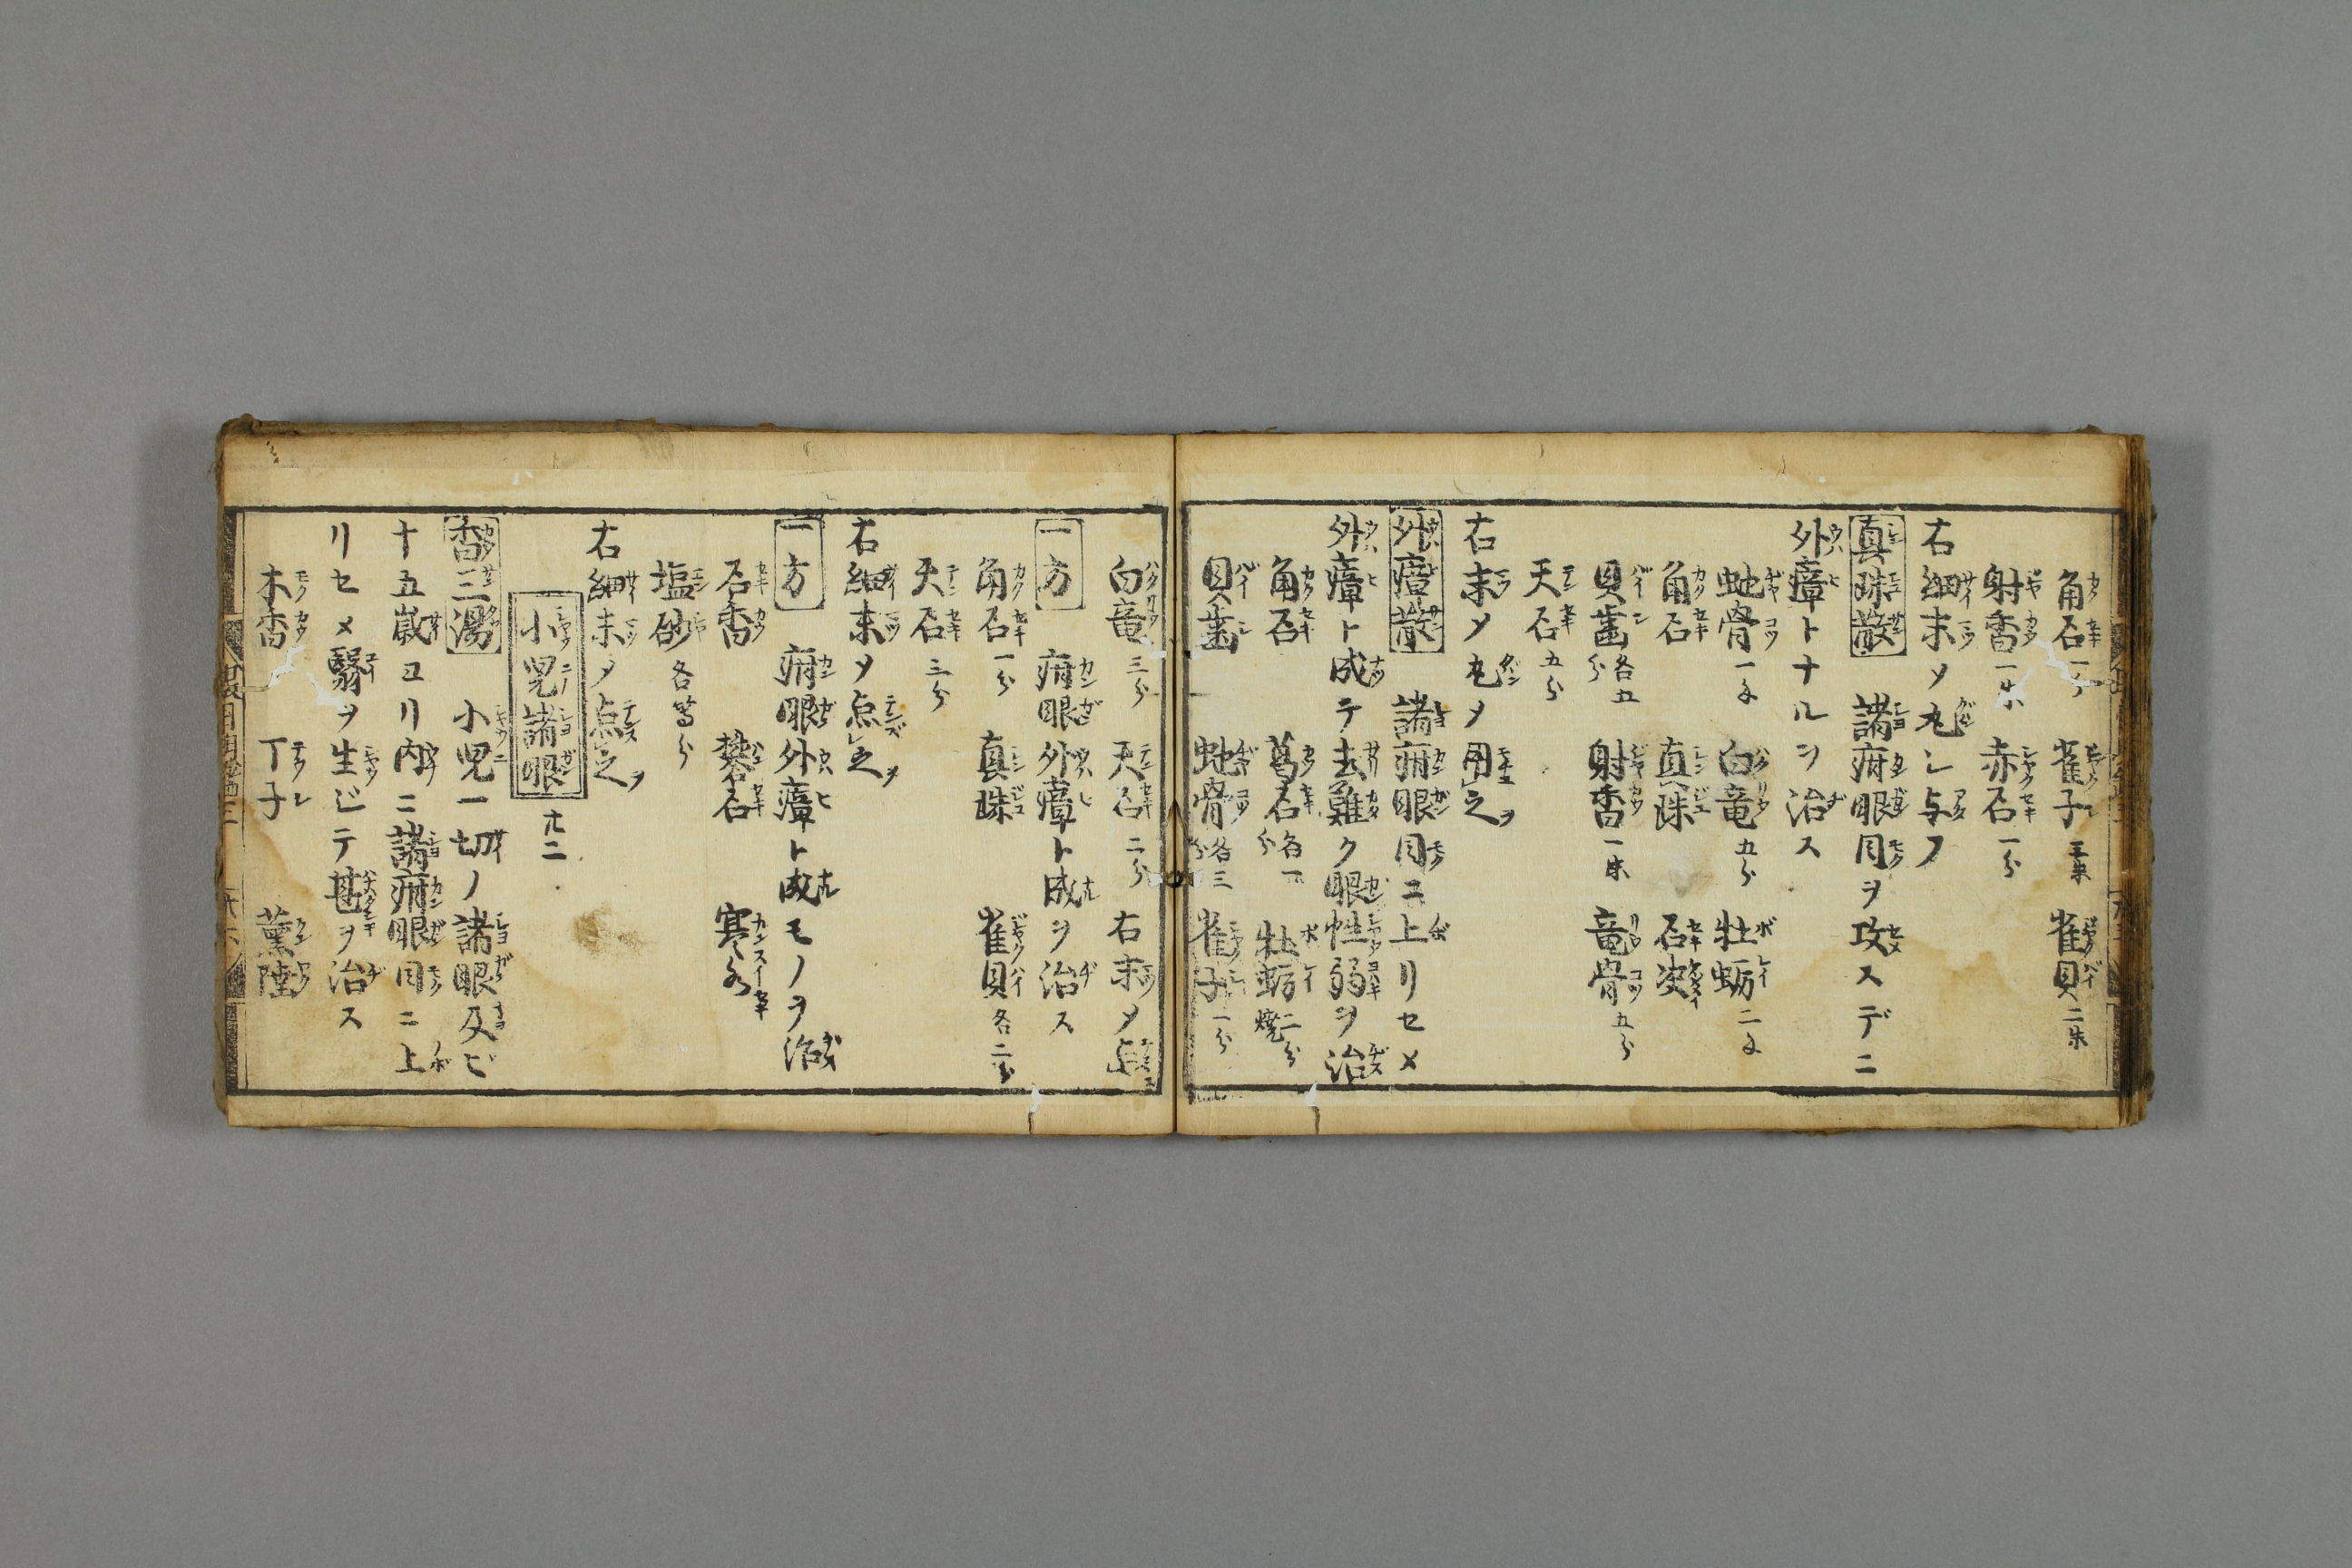 角石一分 雀子三朱 雀貝二朱
射香一朱 赤石一分
右細末メ丸シ与フ
真珠散 諸疳眼目ヲ攻スデニ
外瘴トナルヲ治ス
虵骨一匁 白竜五分 牡蛎二匁
角石 真珠 石决
貝歯各五分 射香一朱 竜骨五分
天石五分
右末メ丸メ用之
外瘴散 諸疳眼目ニ上リセメ
外瘴ト成テ去難ク眼性弱ヲ治
角石 葛石各一分 牡蛎焼二分
貝歯 虵骨各三分 雀子一分
白竜三分 天石二分 右末メ点
一方 疳眼外瘴ト成ヲ治ス
角石一分 真珠 雀貝各二分
天石三分
右細末メ点之
一方 疳眼外瘴ト成モノヲ治
石香 礬石 寒水
塩砂各等分
右細末メ点之
小児諸眼 十二
香三湯 小児一切ノ諸眼及ビ
十五歳ヨリ内ニ諸疳眼目ニ上
リセメ翳ヲ生ジテ甚ヲ治ス
木香 丁子 薫陸